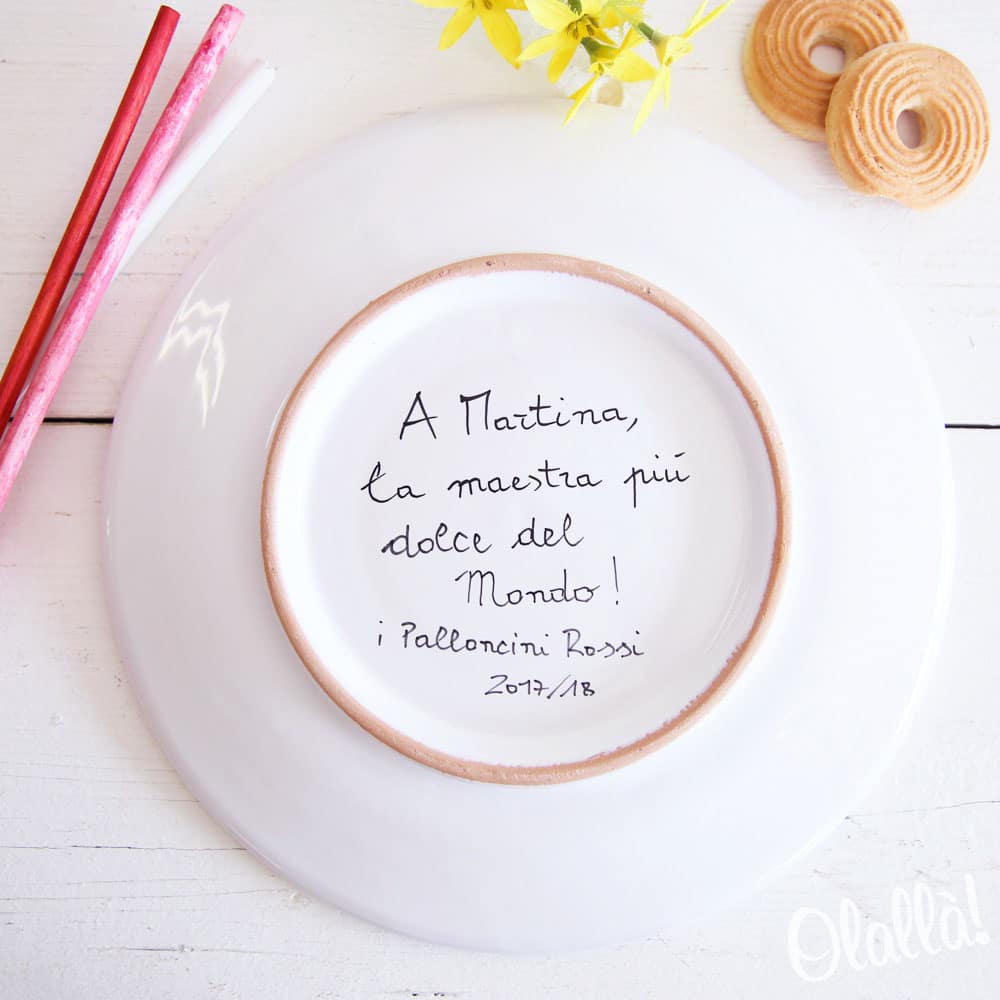 A Martina,
la maestra più
dolce del
Mondo!
i Palloncini Rossi
2017/18
Olallà!